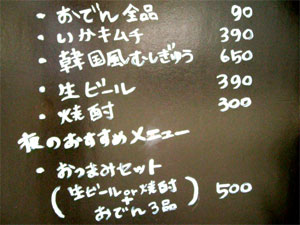 ・おでん全品 90
・いかキムチ 390
・韓国風むしぎゅう 650
・生ビール 390
・焼酎 300
夜のおすすめメニュー
・おつまみセット
(生ビールor焼酎
+
おでん3品) 500